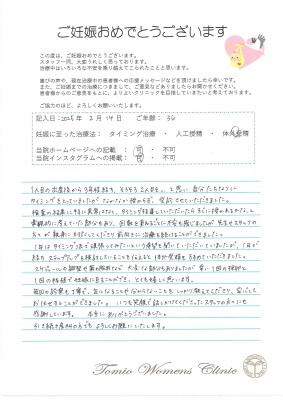 ご妊娠おめでとうございます
この度は、ご妊娠おめでとうございます。
スタッフ一同、大変うれしく思っております。
治療中はいろいろな不安を乗り越えてこられたことと思います。
喜びの声や、現在治療中の患者様への応援メッセージなどを頂けましたら幸いです。
また、ご妊娠までの治療につきまして、ご意見などありましたらお聞かせください。
患者様からのご意見をもとに、よりよいクリニックを目指していきたいと考えております。
ご協力のほど、よろしくお願いいたします。
記入日：2025年 2月14日 ご年齢：36
妊娠に至った治療法： タイミング治療 ・ 人工授精 ・ 体外受精
当院ホームページへの記載： 可 ・ 不可
当院インスタグラムへの掲載： 可 ・ 不可
1人目の出産後から3年経ち、そろそろ2人目を、と思い自分たちなりに
タイミングをとっていましたがなかなか授からず、受診させていただきました。
検査の結果に特に異常はなく、タイミング指導していただいたらすぐに授かれるかな、と
楽観的に考えていた部分もあり、回数を重ねるごとに不安を感じましたが、先生やスタッフの
方々が親身に対応してくださり前向きに治療を続けることができました。
1年はタイミング法で頑張ってみたいという希望を聞いていただいていましたが、1年が
経ち、ステップアップを検討していることを伝えると
スケジュールの調整や薬の服用など大変な部分もありましたが、幸い1回の採卵と
1回の移植で妊娠に至ることができ、とても嬉しく思います。
毎回の診察も丁寧で、気になることや分からないことをしっかり教えてくださり、安心して
お任せすることができました。いつも笑顔で話しかけてくださったスタッフの方々にも
感謝しています。本当にありがとうございました。
引き続き産科の方でもよろしくお願いいたします。
Tomio Womens Clinic